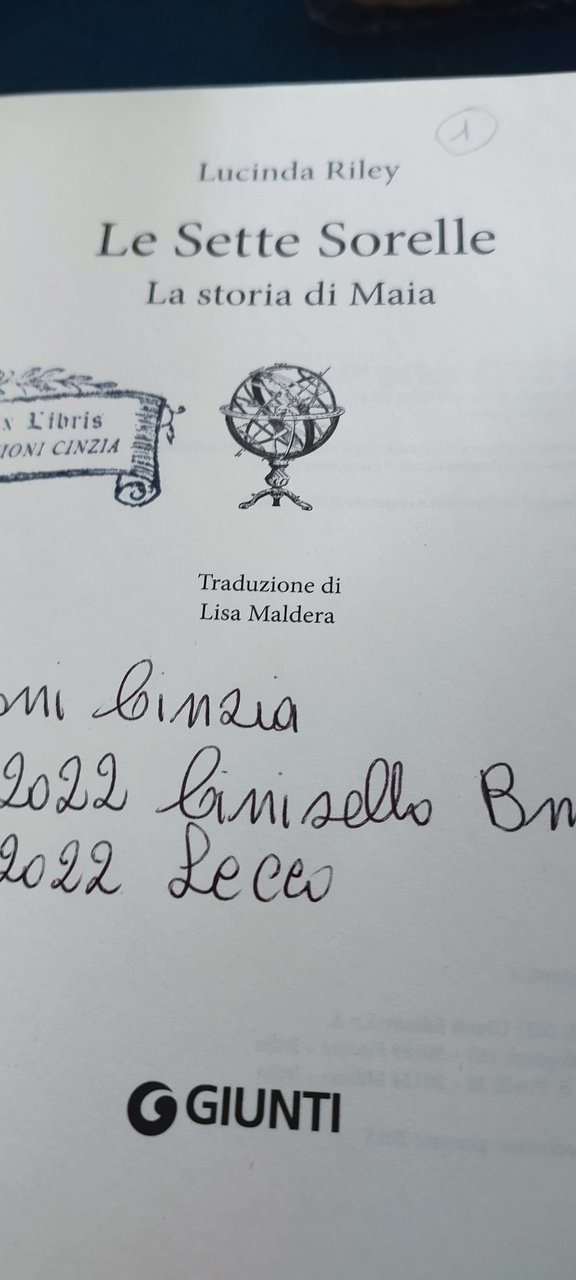 1
Lucinda Riley
Le Sette Sorelle
La storia di Maia
x Libris
IONI CINZIA
Traduzione di
Lisa Maldera
oni Cinzia
2022 Cinisello Bm
2022 Lecco
GIUNTI